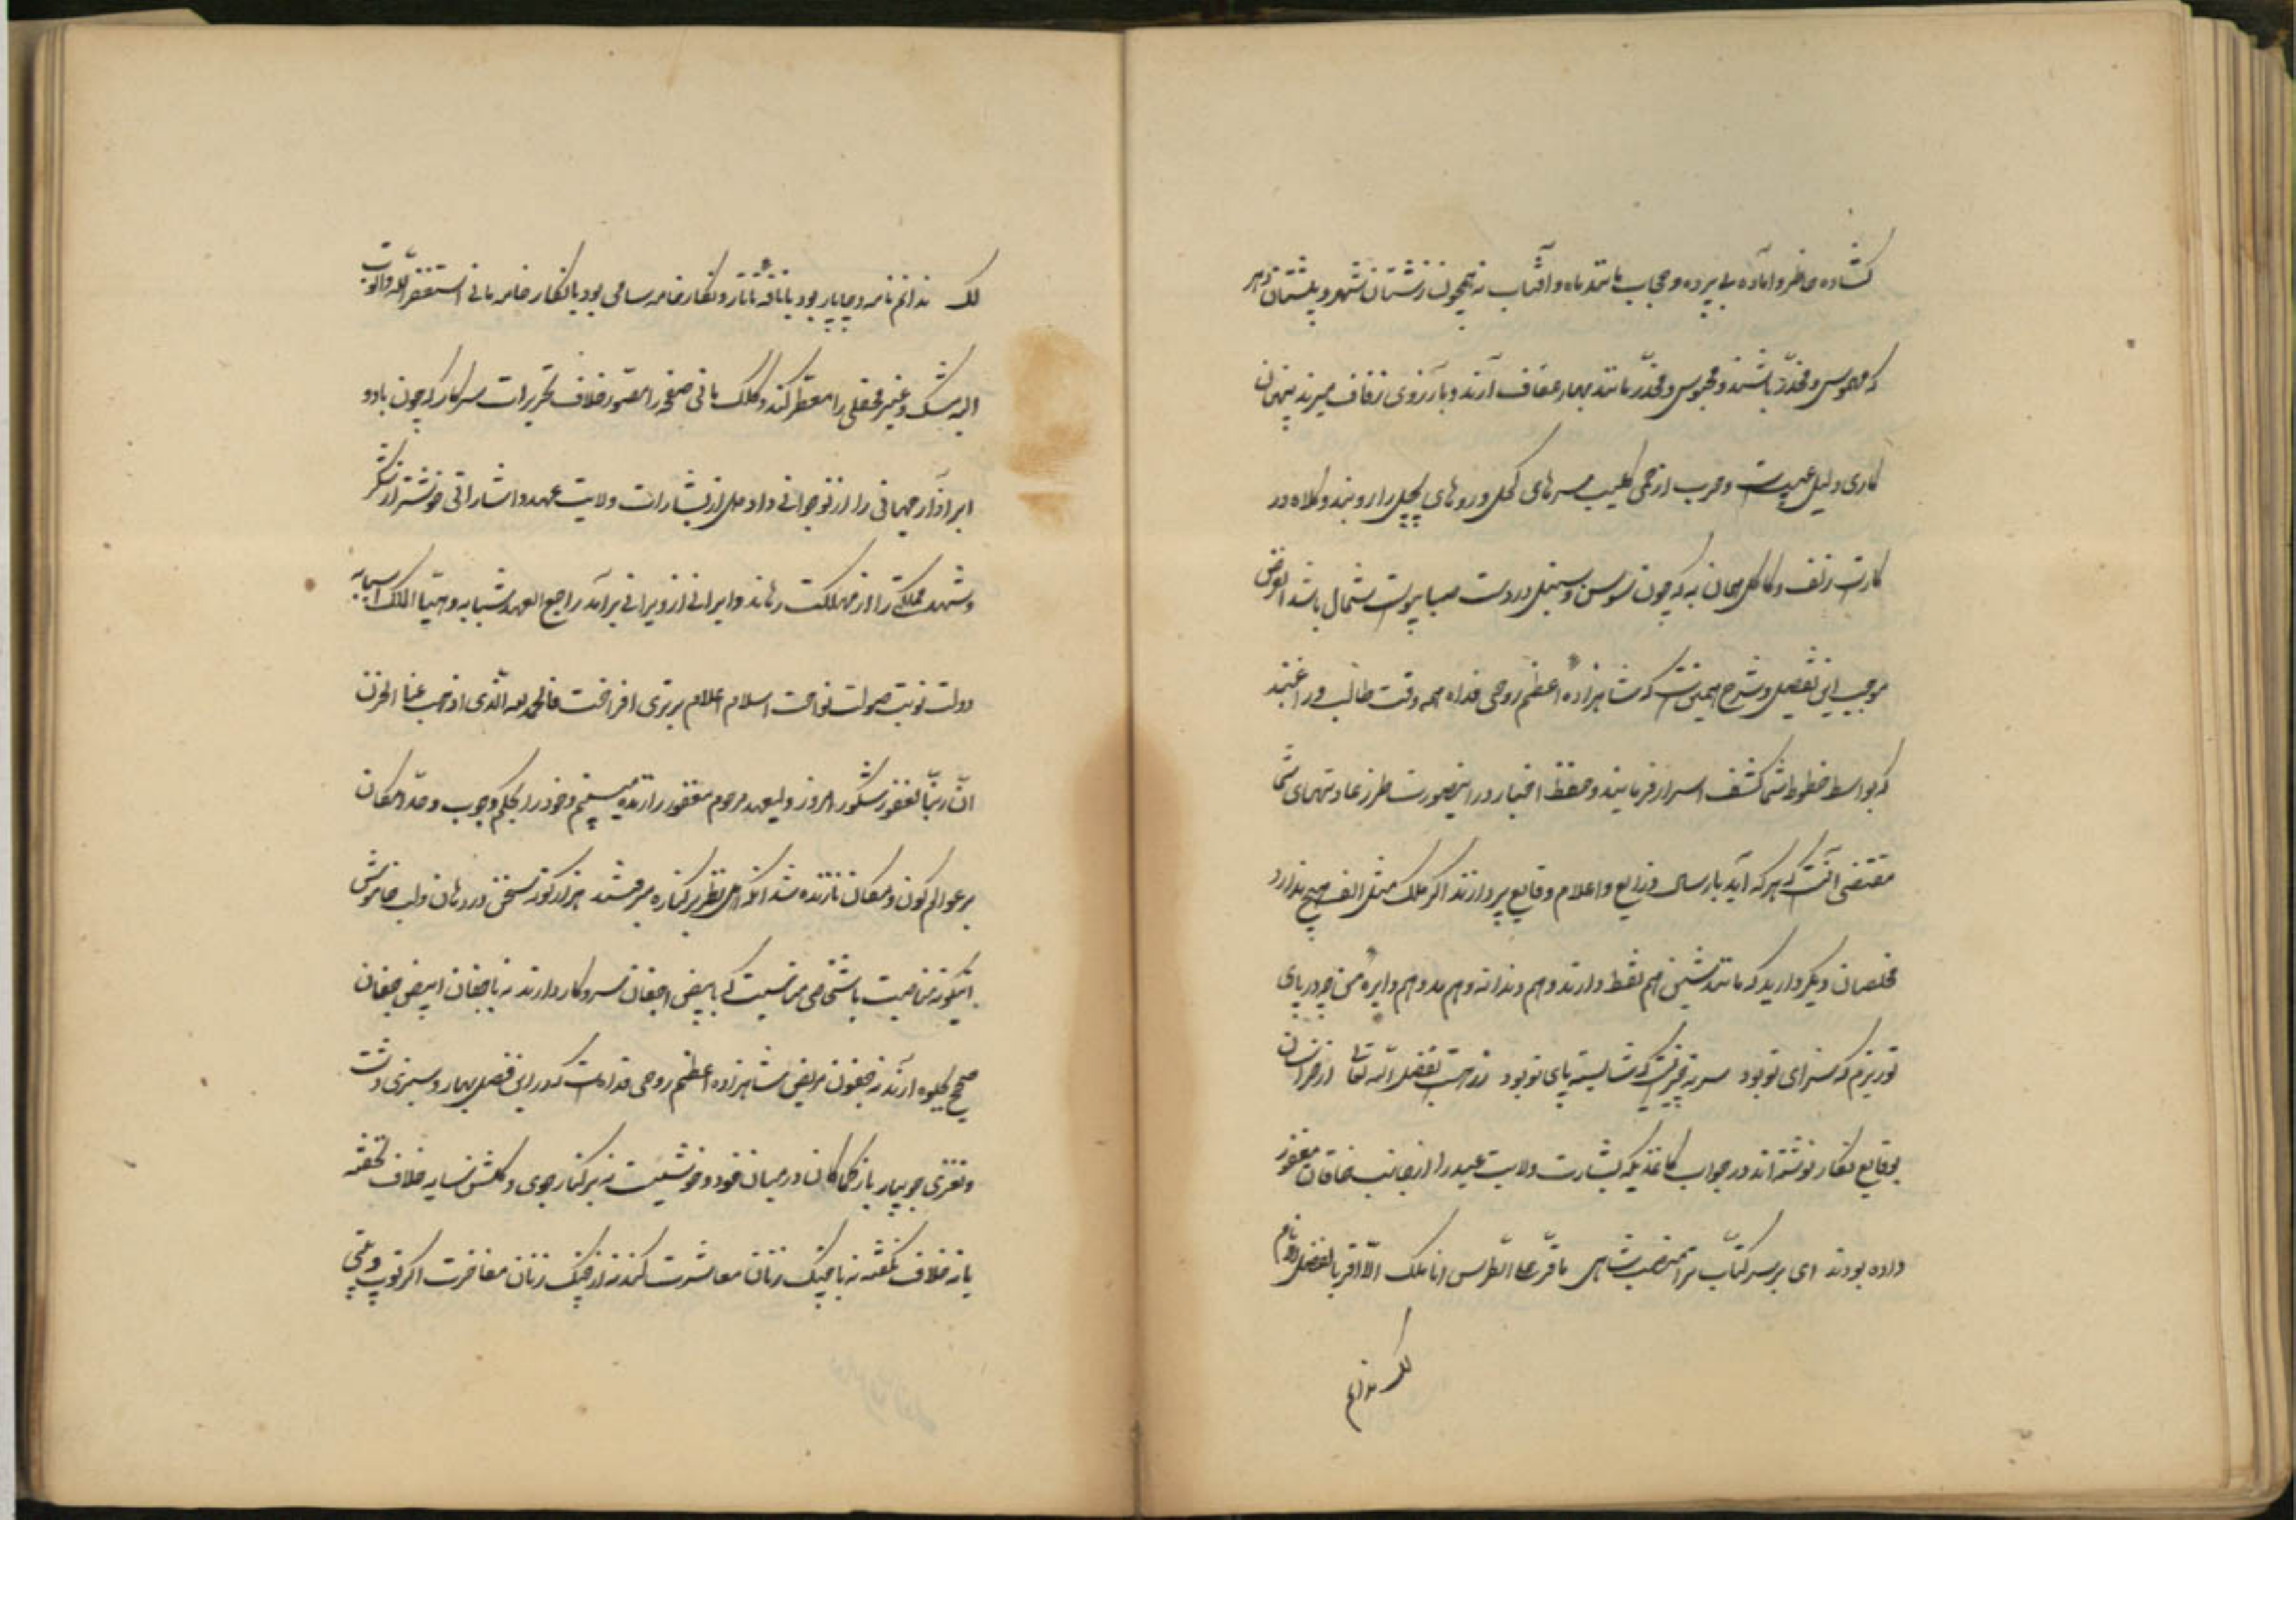 گشاده و حاضر و آماده بی پرده و حجاب مانند ماه و آفتاب نه همچون زشتان شهر و پلشتان دهر
که مهموس و مخدر باشند و محبوس و مخدر مانند بهار عفاف آرند و بآرزوی زفاف میرند پنهان
کاری دلیل عیب است و حرب از بی سرهای کچل و روهای پچل را روبند و کلاه در
کار است زلف و کاکل همان به که چون سوسن و سنبل در دست صبا و شمال باشد الغرض
موجب این تفصیل و شرح همین است که شاهزاده اعظم روحی فداه همه وقت طالب و راغبند
که بواسطه خطوط شما کشف اسرار فرمایند و حفظ اخبار در اینصورت طرز عادتهای شما
مقتضی آنست که هر که آید بارسال ذرایع و اعلام وقایع پردازند اگر کلک مثل الف هیچ ندارد
مخلصان دیگر دارید که مانند شین هم نقطه دارند و هم دندانه و هم مد و هم دایره من چه در پای
تو ریزم که سزای تو بود سر نه چیزیست که شایسته پای تو بود بتفضل الله تعالی از خراسان
بوقایع نگار نوشته اند در جواب کاغذیکه بشارت ولایت عهد را از جانب خاقان مغفور
داده بودند ای بر سر کتاب ترا منصب شاهی
لک ندانم
لک ندانم نامه و چاپار بود یا نافه تاتار و نگار خامه سامی بود یا نگار خامه مانی استغفر الله و اتوب
الیه مشک و عنبر محفلی را معطر کند و کلک مانی صفحه را مصور خلاف تحریرات سرکار که چون باد و
ابر آذار جهانی را از نوجوانی داد بشارات ولایت عهد و اشاراتی خوشتر از شکر
و شهد مملکت را از مهلکت رهاند و ایرانی از ویرانی برآمد راجع العهد شبابه و تهیأ الملک اسبابه
دولت نوبت صولت نواخت اسلام اعلام برتری افراخت فالحمد لله الذی اذهب عنا الحزن
ان ربنا لغفور شکور امروز ولیعهد مرحوم مغفور را زنده میبینم و خود را بحکم وجوب و حد امکان
بر عوالم کون و مکان نازنده شد آنکه اهل نظر بر کناره میرفتند هزار گونه سخن در دهان و لب خاموش
اینگونه مناصب باشخاصی مناسبت که با بیض اجفان سر و کار دارند نه با جفان ابیض جفان
صحیح آرند نه جفون مریض شاهزاده اعظم روحی فداه است که در این فصل بهار و سبزی دشت
و نغزی جویبار باز کماکان در میان خود و خوشیست نه بر کنار جوی و گلشن نسایه خلاف تحفه
یا نه خلاف بنفشه نه با چنگ زنان معاشرت کنند نه از چنگ زنان مفاخرت اگر توپ و تیپی